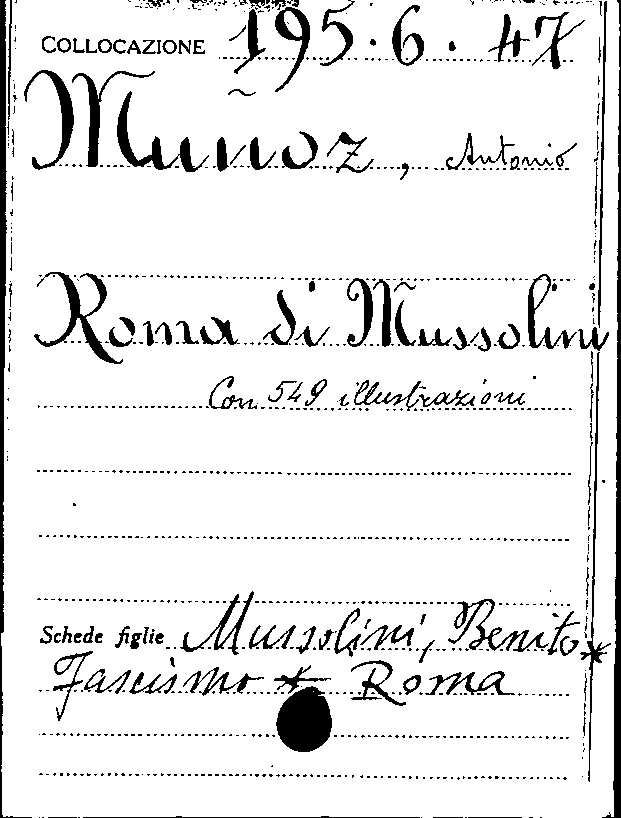 COLLOCAZIONE 195.6.47
Muñoz, Antonio
Roma di Mussolini
Con 549 illustrazioni
Schede figlie Mussolini, Benito *
Fascismo * Roma